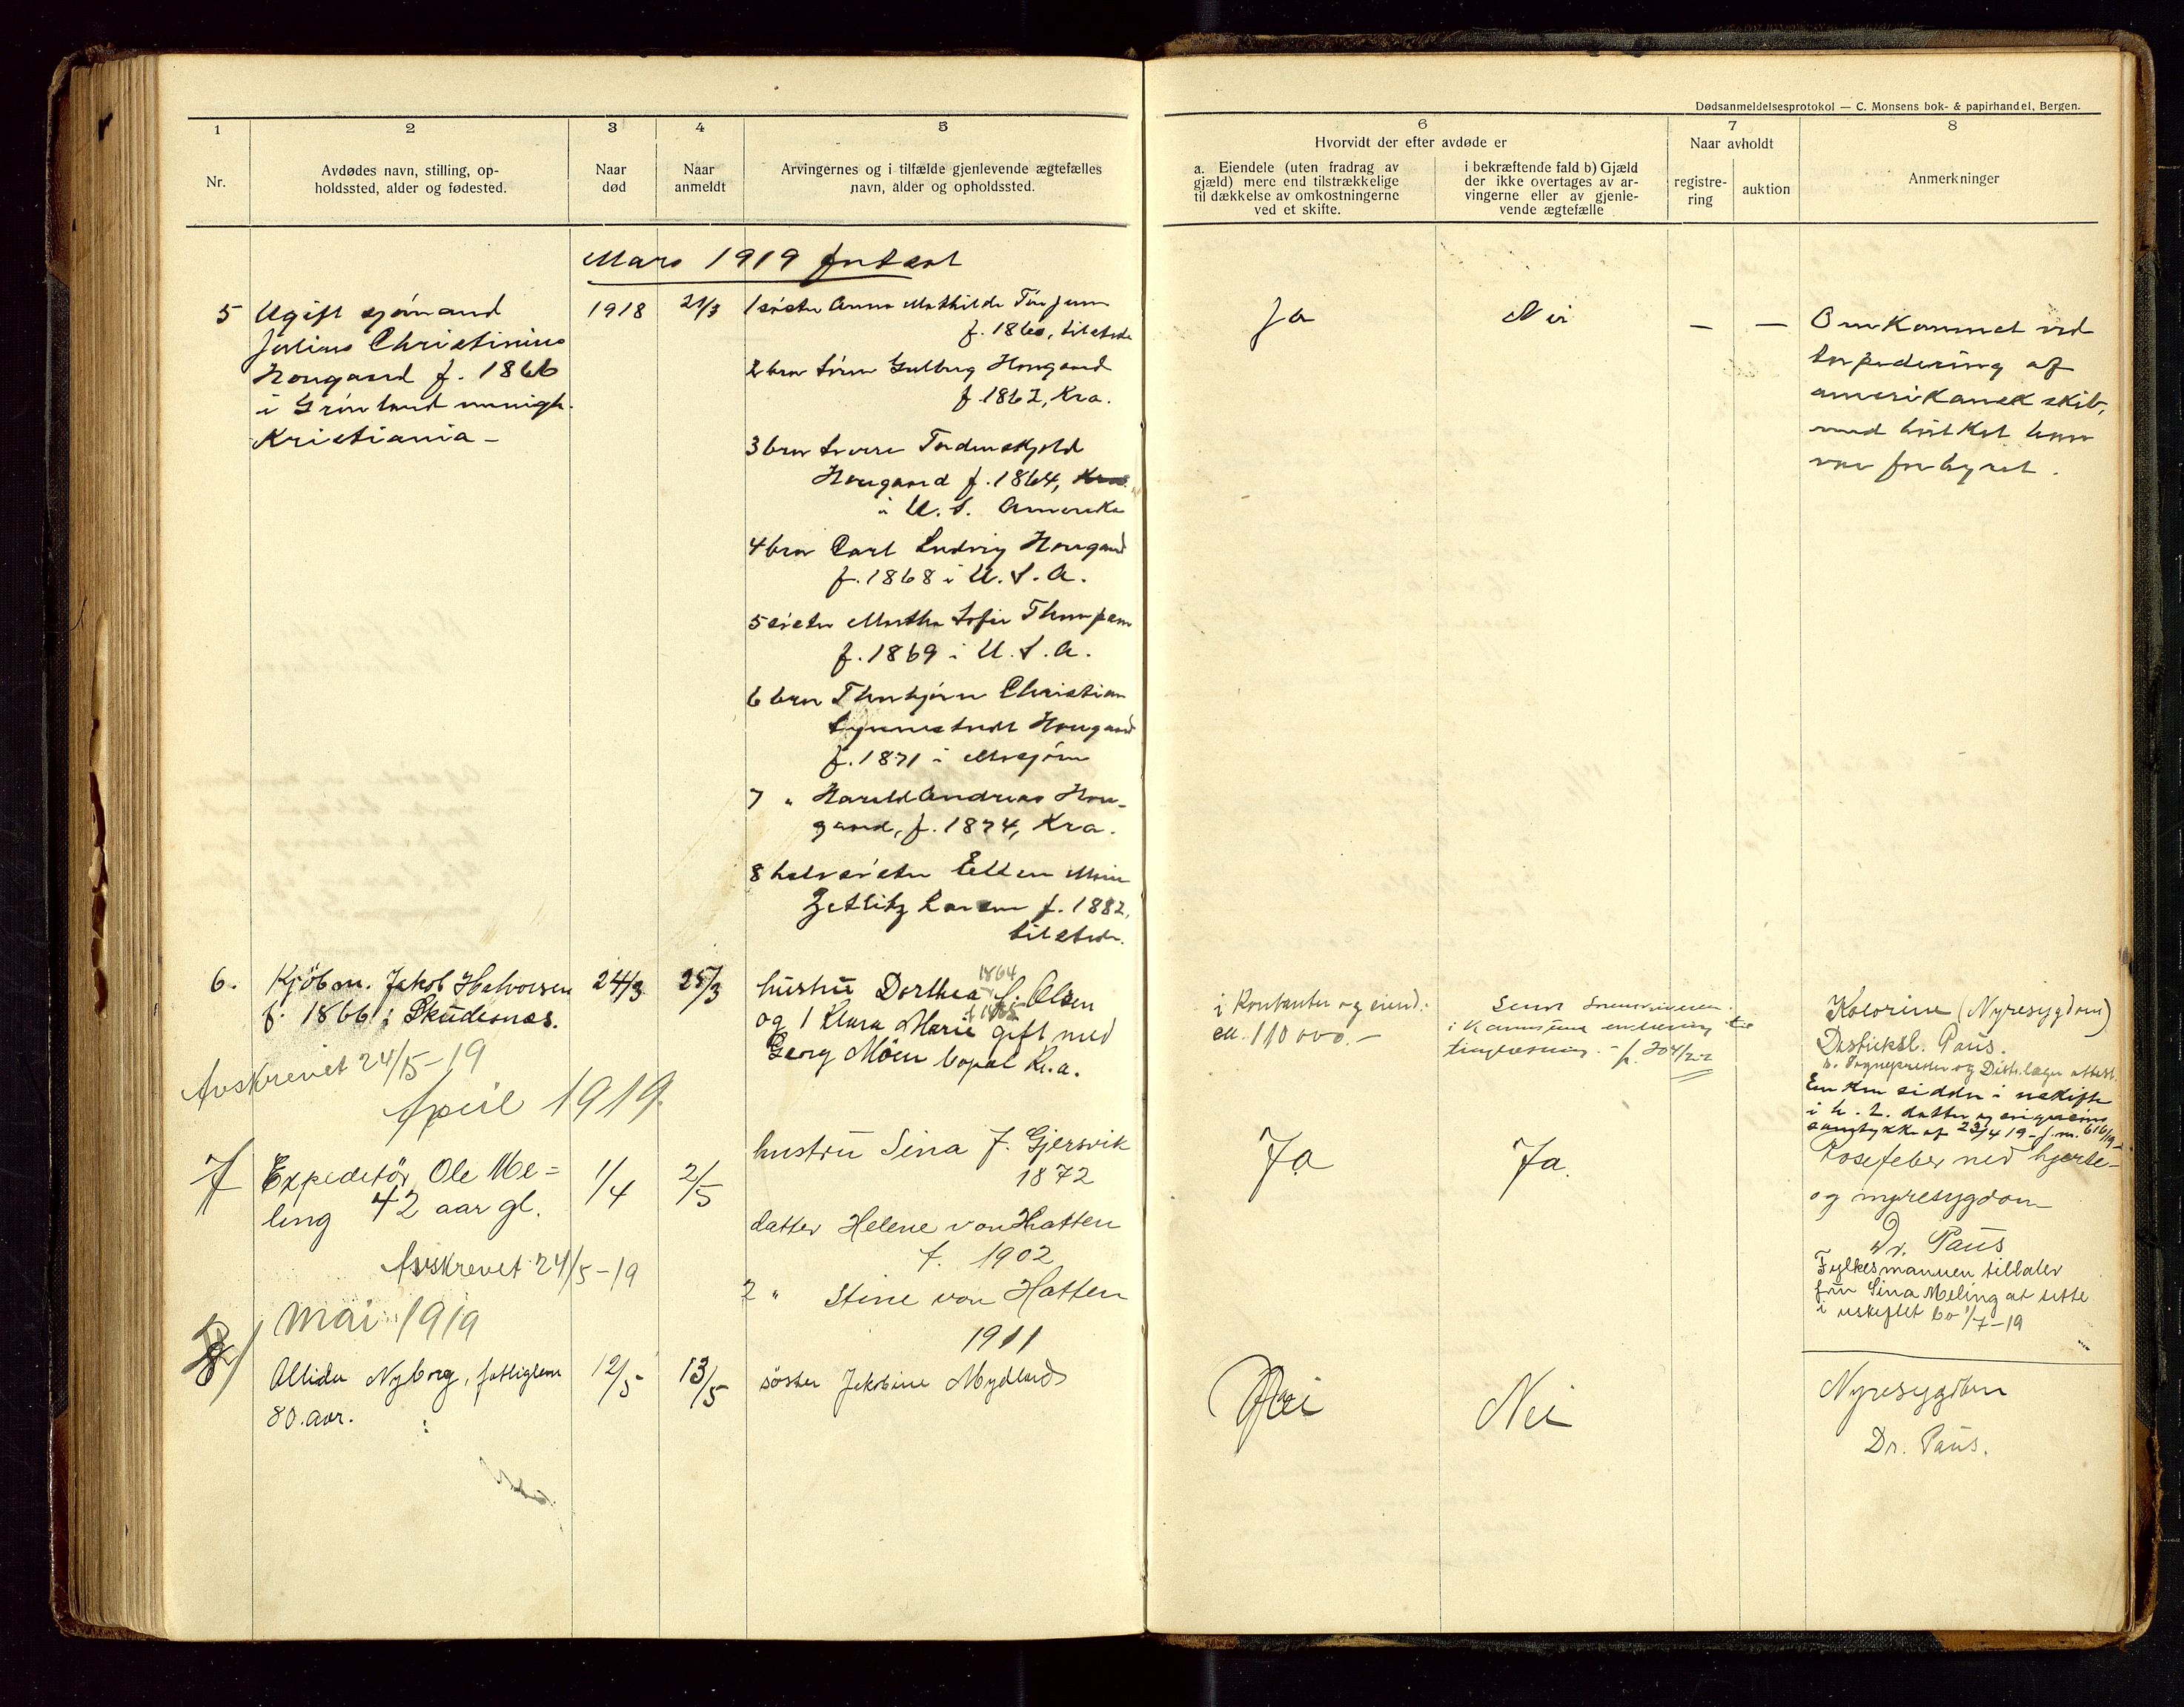 Dødsanmeldelsesprotokol — C. Monsens bok- & papirhandel, Bergen.
1
Nr.
2
Avdødes navn, stilling, op-
holdssted, alder og fødested.
3
Naar
død
4
Naar
anmeldt
5
Arvingernes og i tilfælde gjenlevende ægtefælles
navn, alder og opholdssted.
6
Hvorvidt der efter avdøde er
a. Eiendele (uten fradrag av
gjæld) mere end tilstrækkelige
til dækkelse av omkostningerne
ved et skifte.
i bekræftende fald b) Gjæld
der ikke overtages av ar-
vingerne eller av gjenle-
vende ægtefælle
7
Naar avholdt
registre-
ring
auktion
8
Anmerkninger
Mars 1919 fortsat
5
Ugift sjømand
Julius Christinius
Hougaard f. 1866
i Grønland menigh.
Kristiania -
1918
21/3
1 søster Anna Mathilde
f. 1860, tilstede
2 bror Søren Gulbrg Hougaard
f. 1862, Kra.
3 bror Sverre Tordenskjold
Hougaard f. 1864, Kra.
i U. S. Amerika
4 bror Carl Ludvig Hougaard
f. 1868 i U. S. A.
5 søster Martha Sofie Thompsen
f. 1869 i U. S. A.
6 bror Thorbjørn Christian
Hougaard
f. 1871 i Mosjøen
7 " Harald Andreas Hou-
gaard, f. 1874, Kra.
8 halvsøster Ellen Marie
Zetlitz Larsen f. 1882,
tilstede.
Ja
Nei
—
—
Omkommet ved
torpedering af
amerikansk skib,
med hvilket han
var forhyret.
6.
Kjöbm. Jakob Halvorsen
f. 1866 i Skudesnes.
24/3
25/3
1864
hustru Dorthea S. Olsen
og 1 Klara Marie gift med
Georg Möen bopæl Kr.a.
i Kontanter og eiend.
ca. 110 000.-
tinglæsning. -
Kolorine (Nyresygdom)
Distriktsl. Paus.
Sognepresten og Distr.læger attest.
Enken sidder i uskifte
samtykke af 23/4 19
Avskrevet 24/5-19
April 1919.
7
Expeditör Ole Me-
ling 42 aar gl.
1/4
2/5
hustru Sina J. Gjersvik
1872
datter Helene von Hatten
f. 1902
2 " Stine von Hatten
1911
Ja
Ja.
Rosefeber med hjerte-
og nyresygdom
Dr. Paus
Fylkesmannen tillater
fru Sina Meling at sitte
i uskiftet bo 1/7-19
Avskrevet 24/5-19
Mai 1919
8
Allida Nyborg, fattiglem
80. aar.
12/5
13/5
søster Jakobine Mydland
Nei
Nei
Nyresygdom
Dr. Paus.